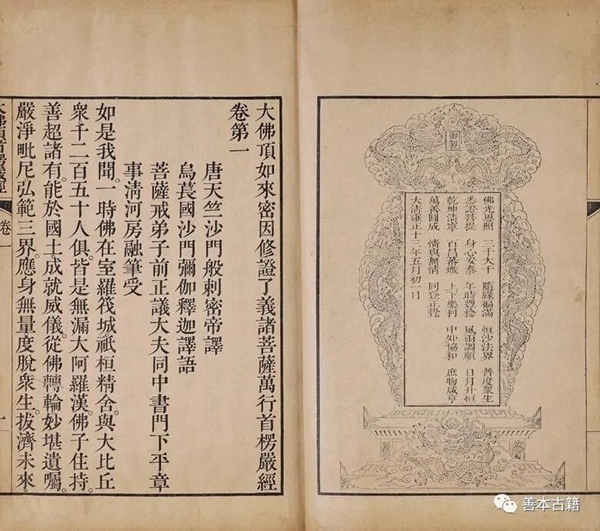 御製
佛光恩照　三千大千　隨緣徧滿　恒沙法界　普度衆生
悉證菩提　身心安泰　年時豐稔　風雨調順　日月升恒
乾坤清寧　百昌蕃熾　上下樂利　中外協和　庶物咸亨
萬善圓成　情與無情　同登正覺
大清雍正十三年五月初一日
大佛頂如來密因修證了義諸菩薩萬行首楞嚴經
卷第一
唐天竺沙門般剌密帝譯
烏萇國沙門彌伽釋迦譯語
菩薩戒弟子前正議大夫同中書門下平章
事清河房融筆受
如是我聞。一時佛在室羅筏城祇桓精舍。與大比丘
衆千二百五十人俱。皆是無漏大阿羅漢。佛子住持。
善超諸有。能於國土成就威儀。從佛轉輪。妙堪遺囑。
嚴淨毗尼。弘範三界。應身無量。度脫衆生。拔濟未來。
大佛頂首楞嚴經
卷一
一
善本古籍